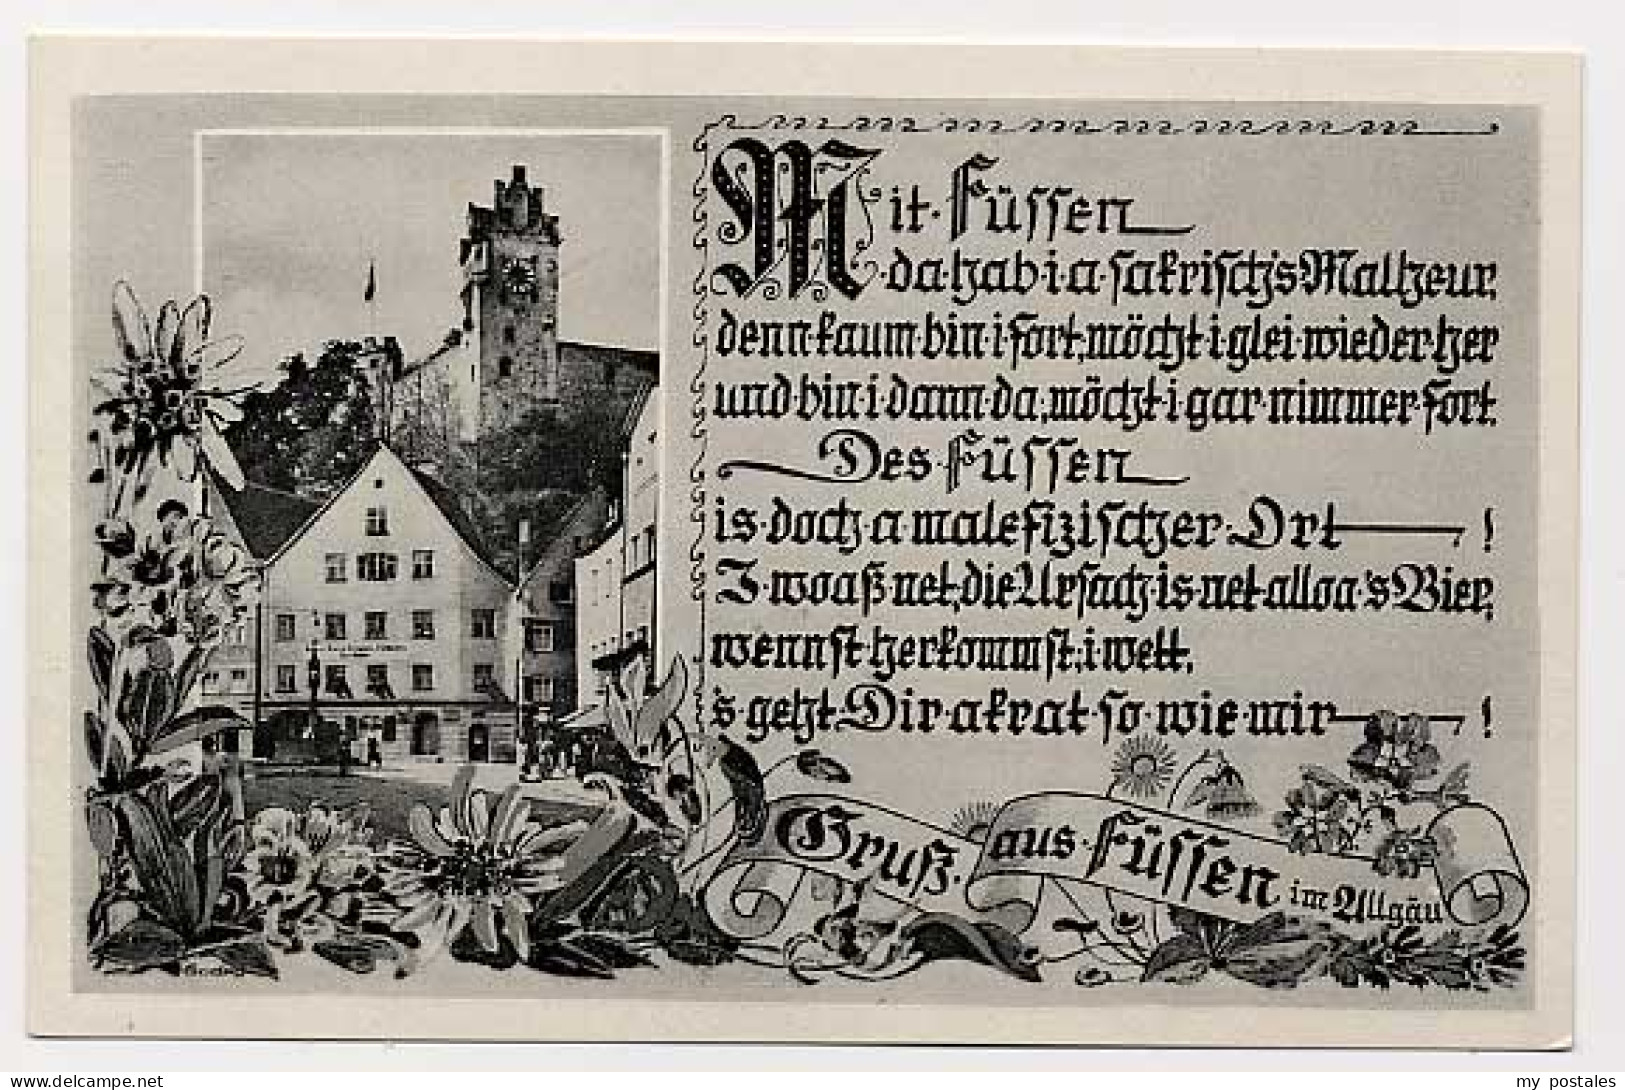 Mit · Füssen
da · hab i a · sakrisch's Malheur,
denn · kaum · bin · i fort, möcht i glei · wieder · her
und · bin i dann da, möcht · i gar nimmer fort.
Des · Füssen
is · doch · a malefizischer · Ort — !
I · woaß net, die Ursach · is · net alloa 's Bier,
wennst herkommst, i wett,
's geht · Dir akrat so · wie · mir — !
Gruß · aus · Füssen im Allgäu
my postales